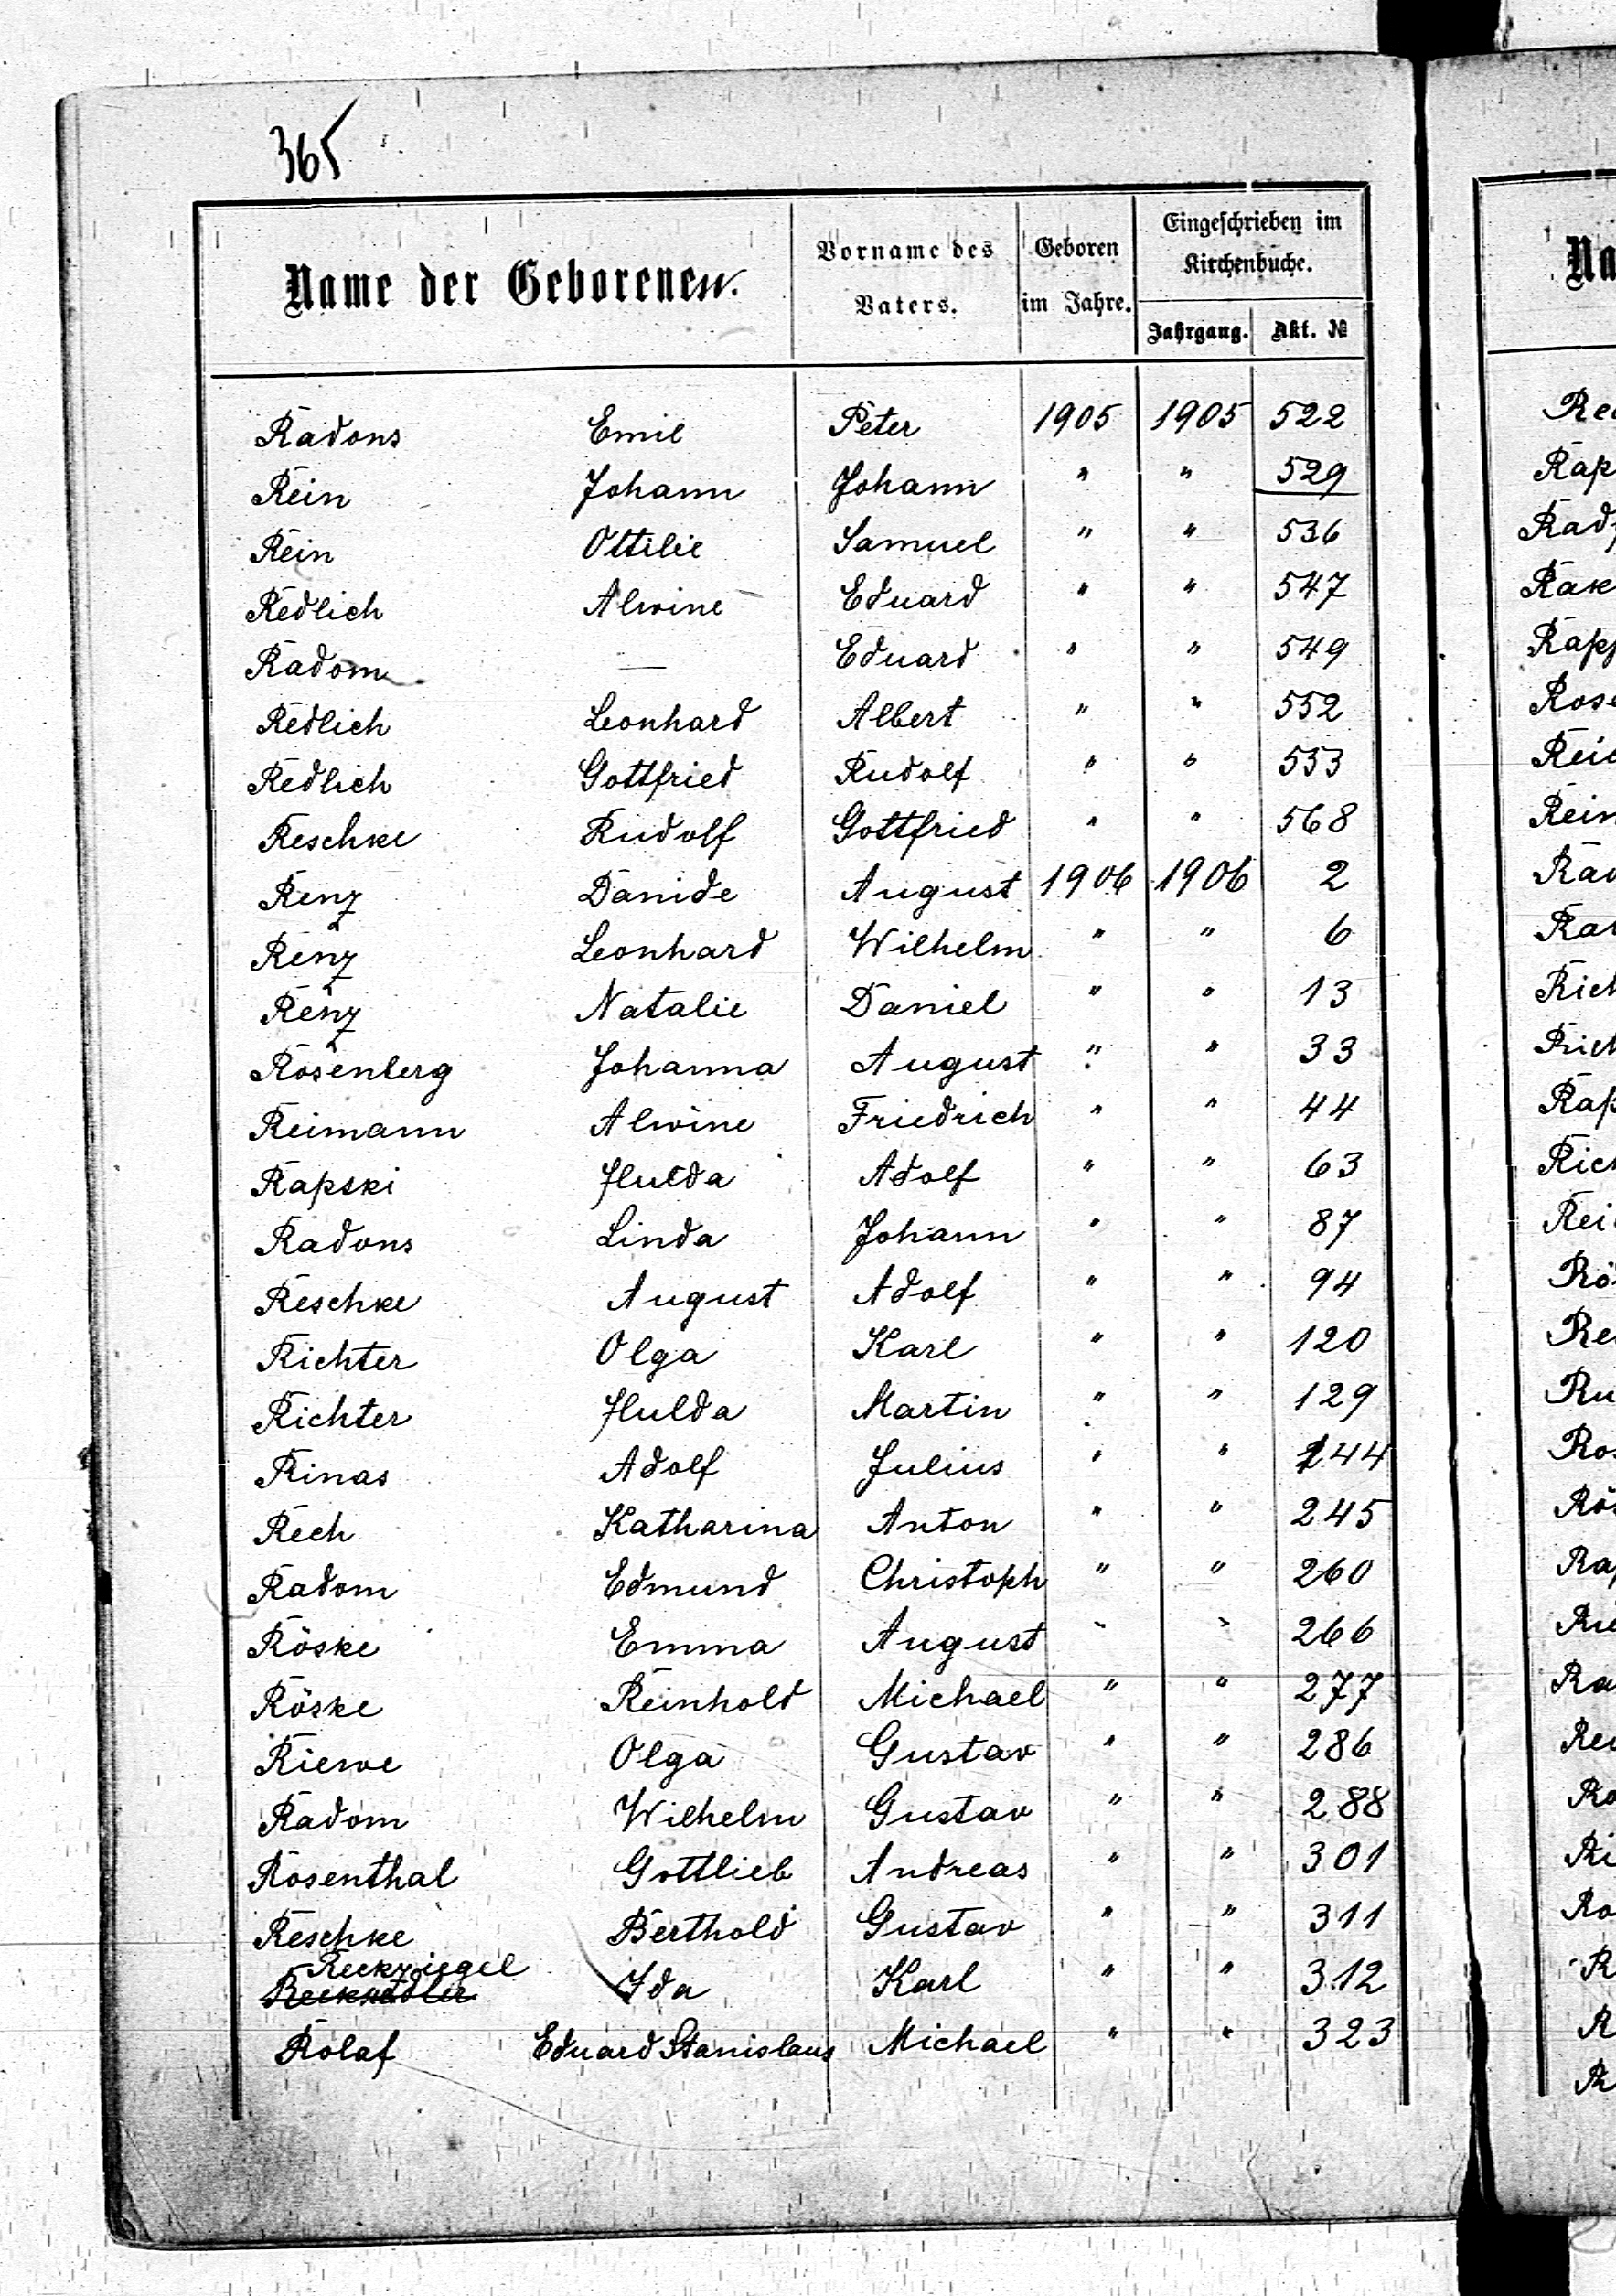 365
Name der Geborenen. Vorname des Vaters. Geboren im Jahre. Eingeschrieben im Kirchenbuche.
Jahrgang. Akt. №
Radons Emil Peter 1905 1905 522
Rein Johann Johann " " 529
Rein Ottilie Samuel " " 536
Redlich Alwine Eduard " " 547
Radom — Eduard " " 549
Redlich Leonhard Albert " " 552
Redlich Gottfried Rudolf " " 553
Reschke Rudolf Gottfried " " 568
Renz Danide August 1906 1906 2
Renz Leonhard Wilhelm " " 6
Renz Natalie Daniel " " 13
Rosenberg Johanna August " " 33
Reimann Alwine Friedrich " " 44
Rapski Hulda Adolf " " 63
Radons Linda Johann " " 87
Reschke August Adolf " " 94
Richter Olga Karl " " 120
Richter Hulda Martin " " 129
Rinas Adolf Julius " " 244
Rech Katharina Anton " " 245
Radom Edmund Christoph " " 260
Röske Emma August " " 266
Röske Reinhold Michael " " 277
Riewe Olga Gustav " " 286
Radom Wilhelm Gustav " " 288
Rosenthal Gottlieb Andreas " " 301
Reschke Berthold Gustav " " 311
Reckziegel
Ida Karl " " 312
Rolaf Eduard Stanislaus Michael " " 323